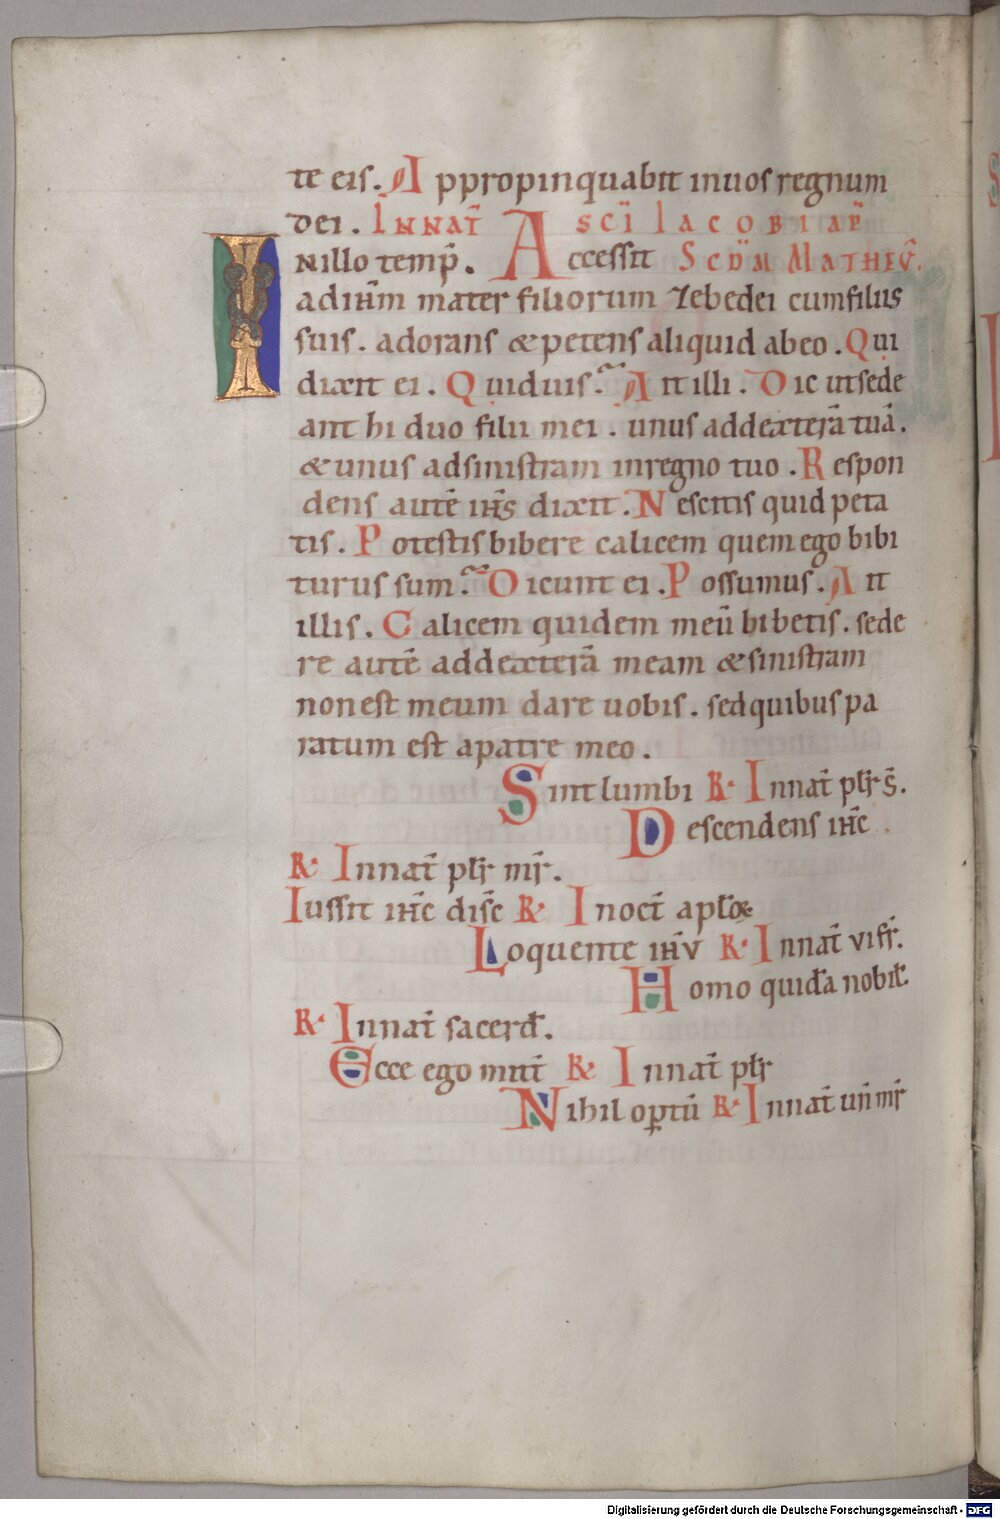 te eis. Appropinquabit inuos regnum
dei. INNAT̄ SCĪ IACOBI AP̄
INillo temp̄. Accessit SCDM MATHEV̄.
adihm̄ mater filiorum Zebedei cumfiliis
suis. adorans &petens aliquid abeo. Qui
dixit ei. Quiduis? Ait illi. Dic utsede
ant hi duo filii mei. unus addexterā tuā.
&unus adsinistram inregno tuo. Respon
dens autē ihs̄ dixit. Nescitis quid peta
tis. Potestis bibere calicem quem ego bibi
turus sum? Dicunt ei. Possumus. Ait
illis. Calicem quidem meū bibetis. sede
re autē addexterā meam &sinistram
nonest meum dare uobis. sedquibus pa
ratum est apatre meo.
Sint lumbi R. Innat̄ plr̄ s̄.
Descendens ihc̄
R. Innat̄ plr̄ mr̄.
Iussit ihc̄ disc̄ R. Inoct̄ aplōꝝ
Loquente ihū R. Innat̄ virḡ.
Homo quidā nobil̄.
R. Innat̄ sacerd̄.
Ecce ego mitt̄ R. Innat̄ plr̄
Nihil optū R. Innat̄ un̄ mr̄
Digitalisierung gefördert durch die Deutsche Forschungsgemeinschaft - DFG